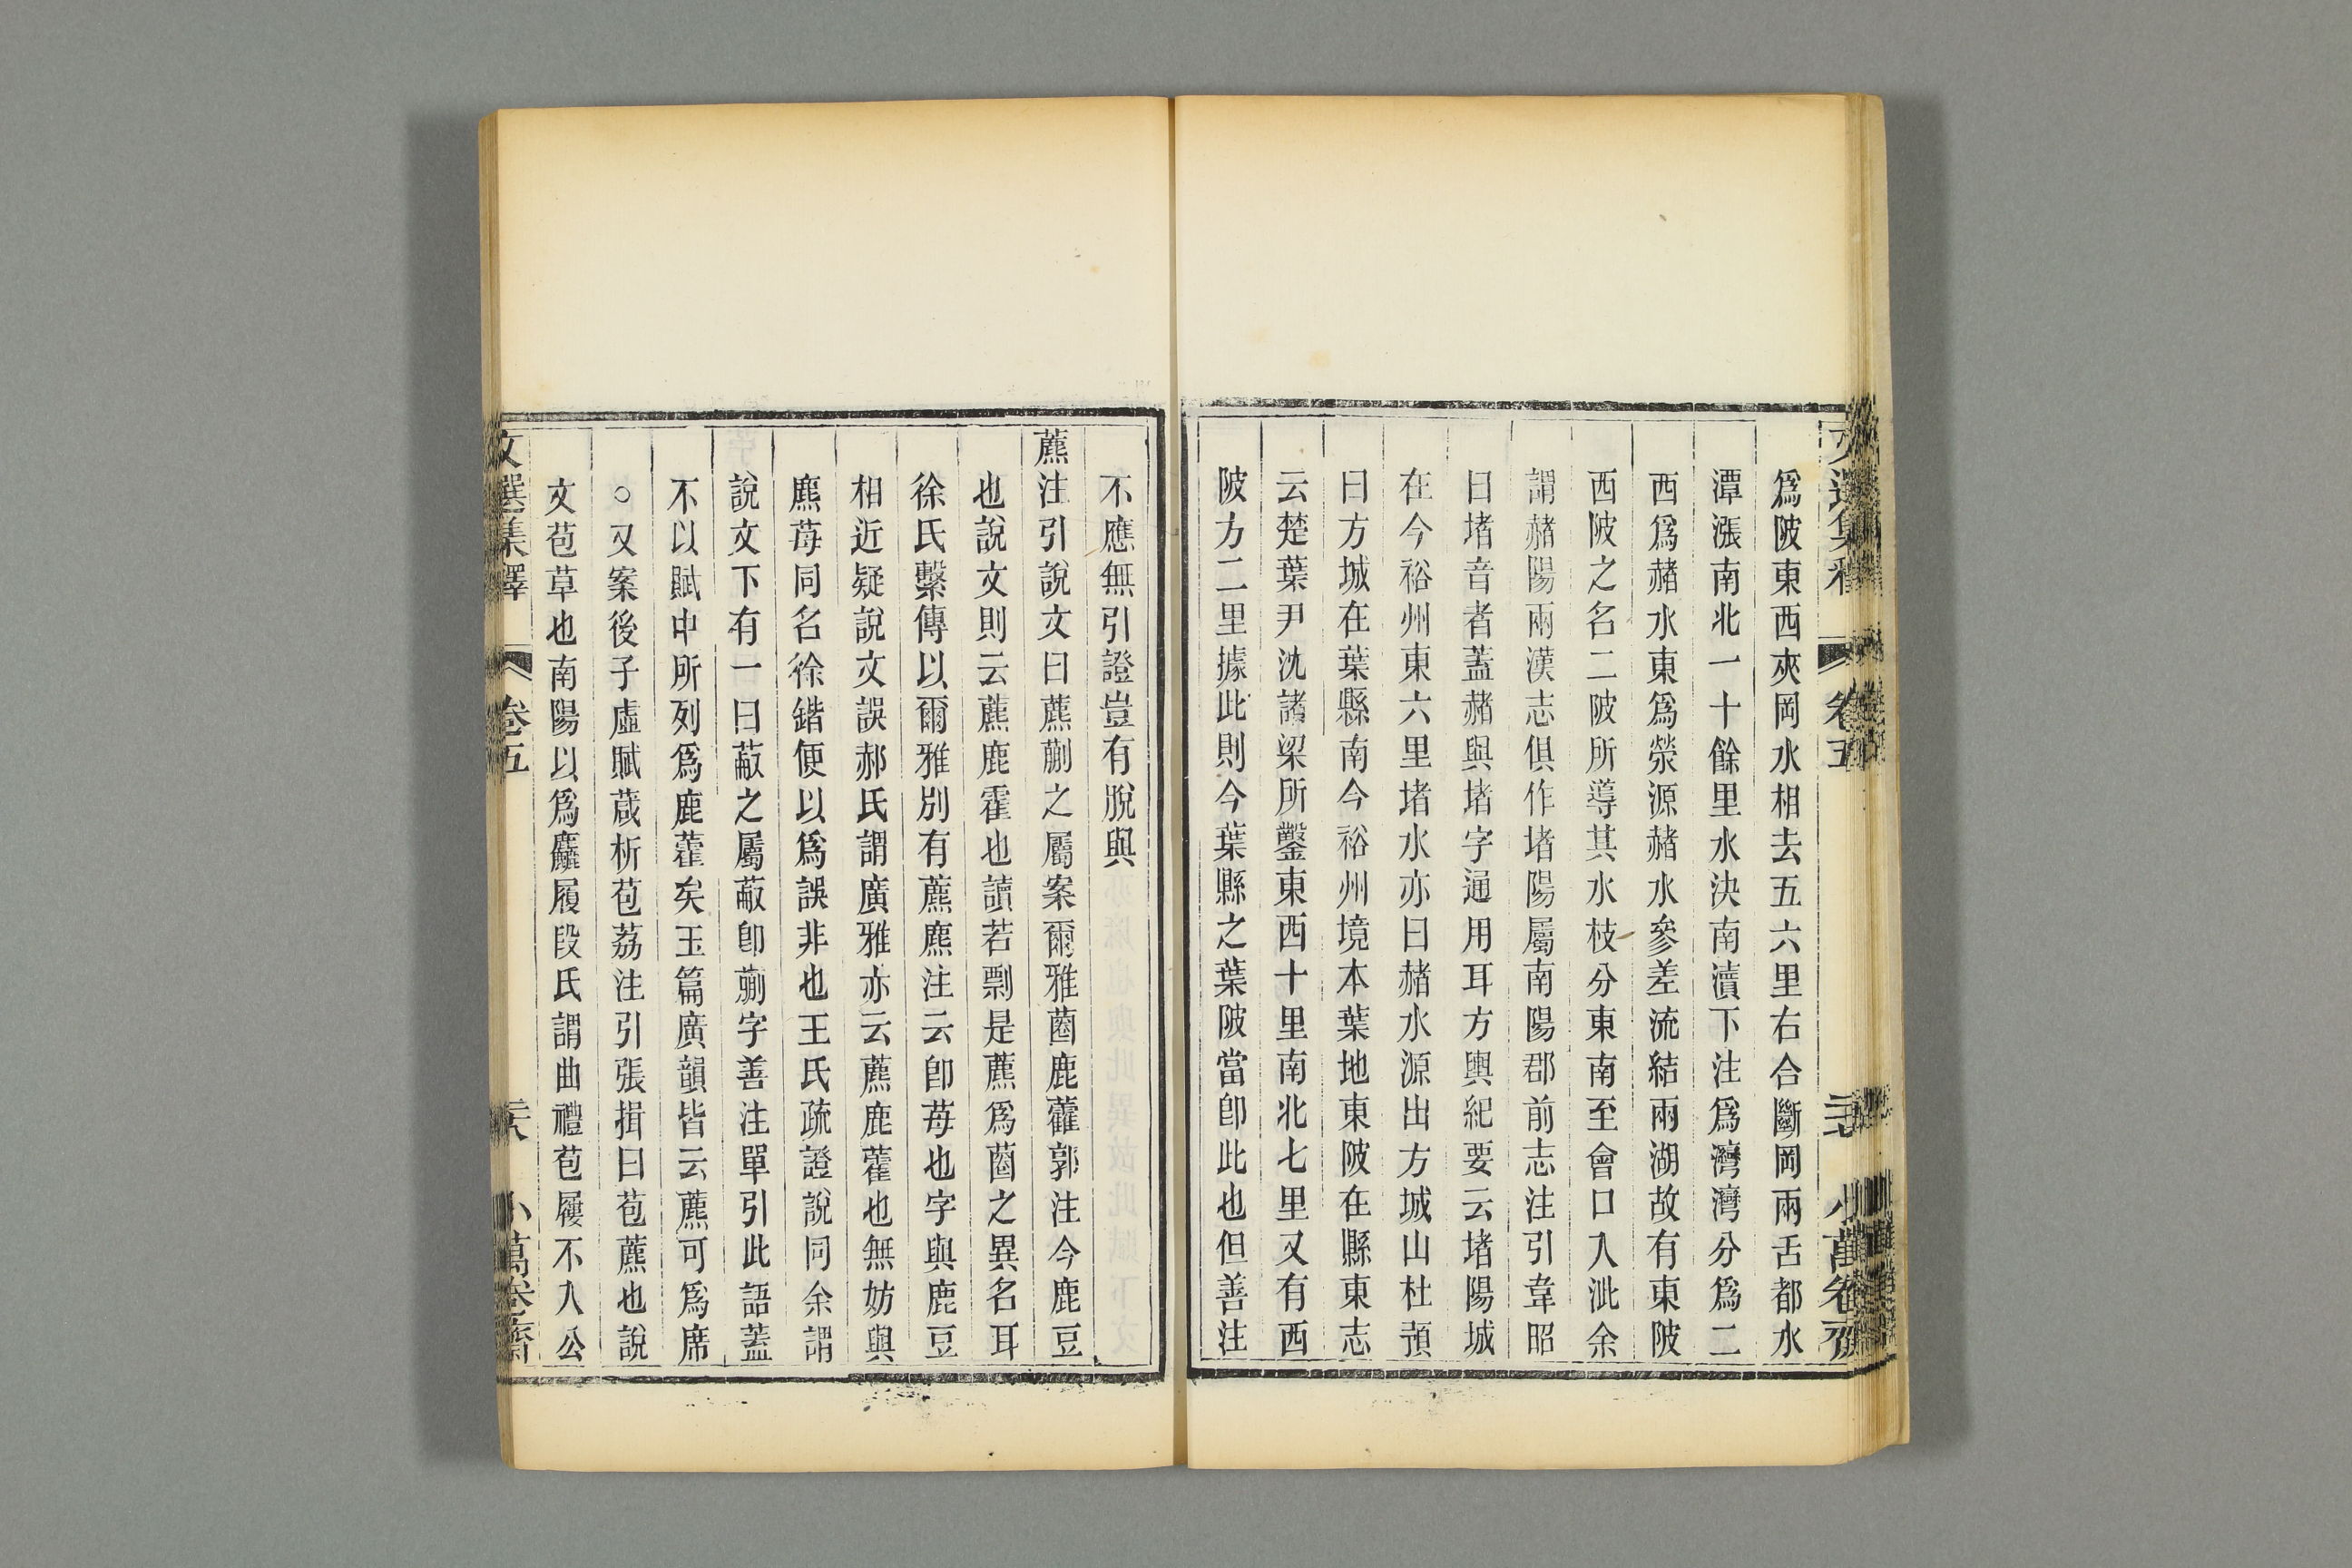 文選集釋 卷五 二十七 小萬卷齋
爲陂東西夾岡水相去五六里右合斷岡兩舌都水
潭漲南北一十餘里水決南瀆下注爲灣灣分爲二
西爲赭水東爲滎源赭水參差流結兩湖故有東陂
西陂之名二陂所導其水枝分東南至會口入泚余
謂赭陽兩漢志俱作堵陽屬南陽郡前志注引韋昭
曰堵音者蓋赭與堵字通用耳方輿紀要云堵陽城
在今裕州東六里堵水亦曰赭水源出方城山杜預
曰方城在葉縣南今裕州境本葉地東陂在縣東志
云楚葉尹沈諸梁所鑿東西十里南北七里又有西
陂方二里據此則今葉縣之葉陂當卽此也但善注
不應無引證豈有脫與
藨注引說文曰藨蒯之屬案爾雅蔨鹿藿郭注今鹿豆
也說文則云藨鹿霍也讀若剽是藨爲蔨之異名耳
徐氏繫傳以爾雅別有藨麃注云卽莓也字與鹿豆
相近疑說文誤郝氏謂廣雅亦云藨鹿藿也無妨與
麃莓同名徐鍇便以爲誤非也王氏疏證說同余謂
說文下有一曰蔽之屬蔽卽蒯字善注單引此語蓋
不以賦中所列爲鹿藿矣玉篇廣韻皆云藨可爲席
○又案後子虛賦葴析苞荔注引張揖曰苞藨也說
文苞草也南陽以爲麤履段氏謂曲禮苞屨不入公
文選集釋 卷五 二十八 小萬卷齋